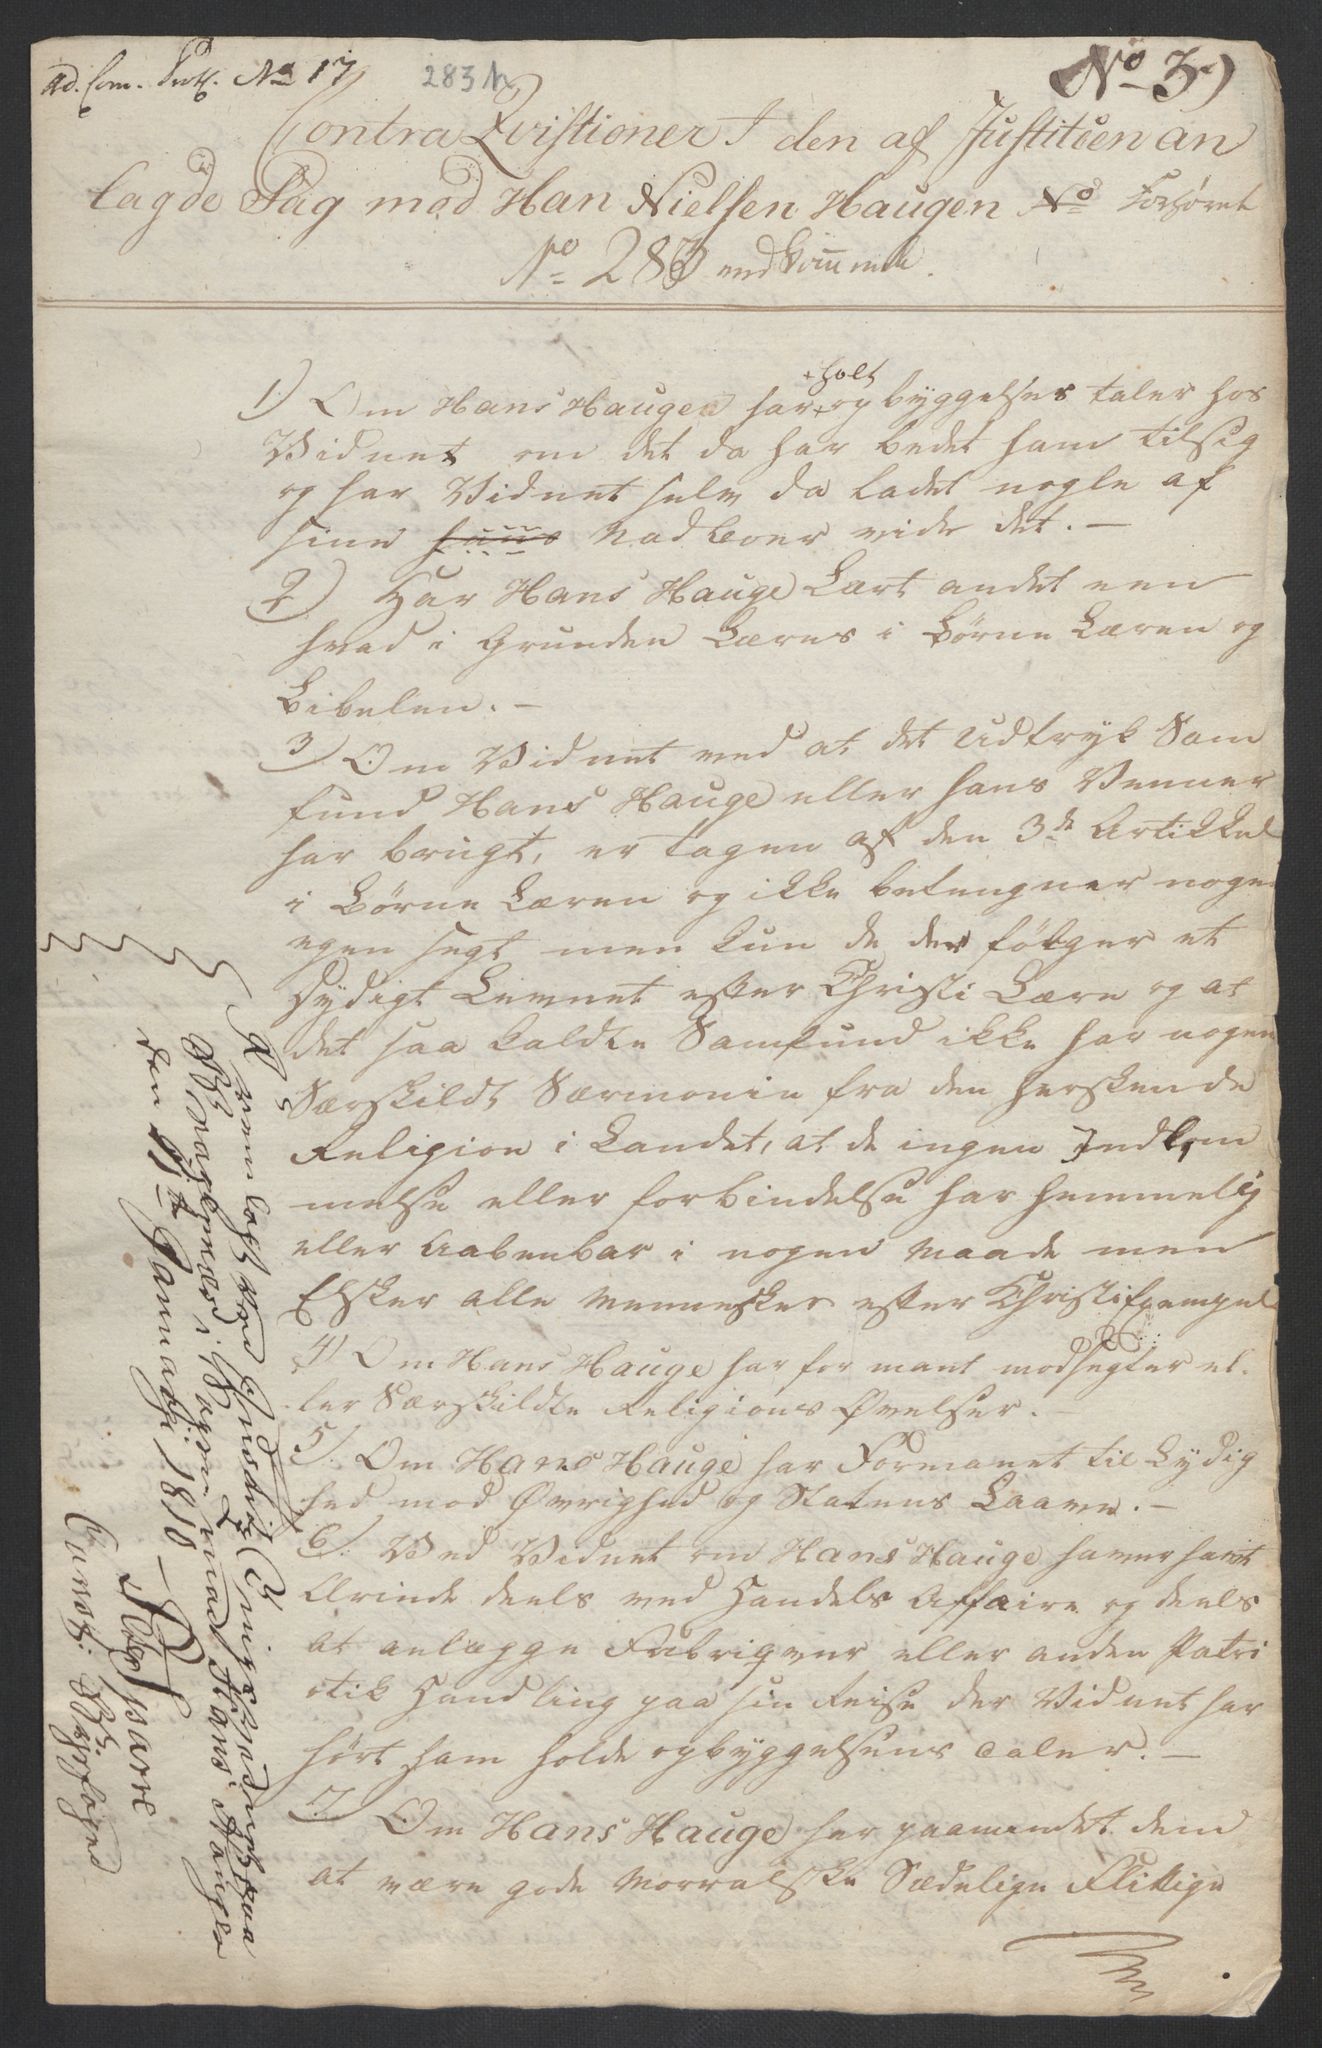 ad. Com. Prot. No 17
283 b
No 3)
Contra Qvistioner I den af Justitsen an
lagde Sag mod Han Nielsen Haugen No Forhøret
No 283 vedkommende.
1) Om Hans Haugen har holt opbyggelses taler hos
Vidnet om det da har bedet ham tilsig
og har Vidnet selv da ladet nogle af
sine huus Nadboer vide det. —
2) Har Hans Hauge Lært andet een
hvad i Grunden Læres i Børne Læren og
Bibelen. —
3) Om Vidnet ved at det Udtryk Sam
fund Hans Hauge eller hans Venner
har brugt, er tagen af den 3de Artikkel
i Børne Læren og ikke betengner nogen
egen segt men kun de der følger et
Dydigt Levnet efter Christi Lære og at
det saa kaldte Samfund ikke har nogen
Særskildt Særmonie fra den herskende
Religion i Landet, at de ingen Indkom
melse eller forbindelse har hemmelig
eller Aabenbar i nogen Maade men
Elsker alle Mennesker efter Christi Exempel
4) Om Hans Hauge har for mant modsegter el-
ler Særskildte Religions Øvelser.
5) Om Hans Hauge har Formanet til Lydig
hed mod Øvrighed og Statens Laave. —
6) Ved Vidnet om Hans Hauge haver havt
Ærinde deels ved Handels Affaire og deels
at anlægge Fabriqver eller anden Patri
otik Handling paa sin Reise der Vidnet har
hørt ham holde opbyggelsens taler. —
7) Om Hans Hauge har paamindet dem
at være gode Morralske Sædelige Flittige
Fremlagt ved
paa
Bragernes i Sagen mod Hans Hauge
den Januarii 1810 —
Const.